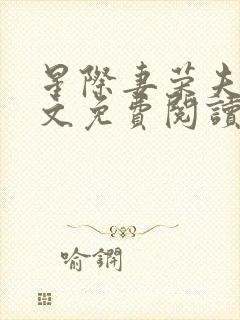 星際妻荣夫
文免費閱讀
喻鐦